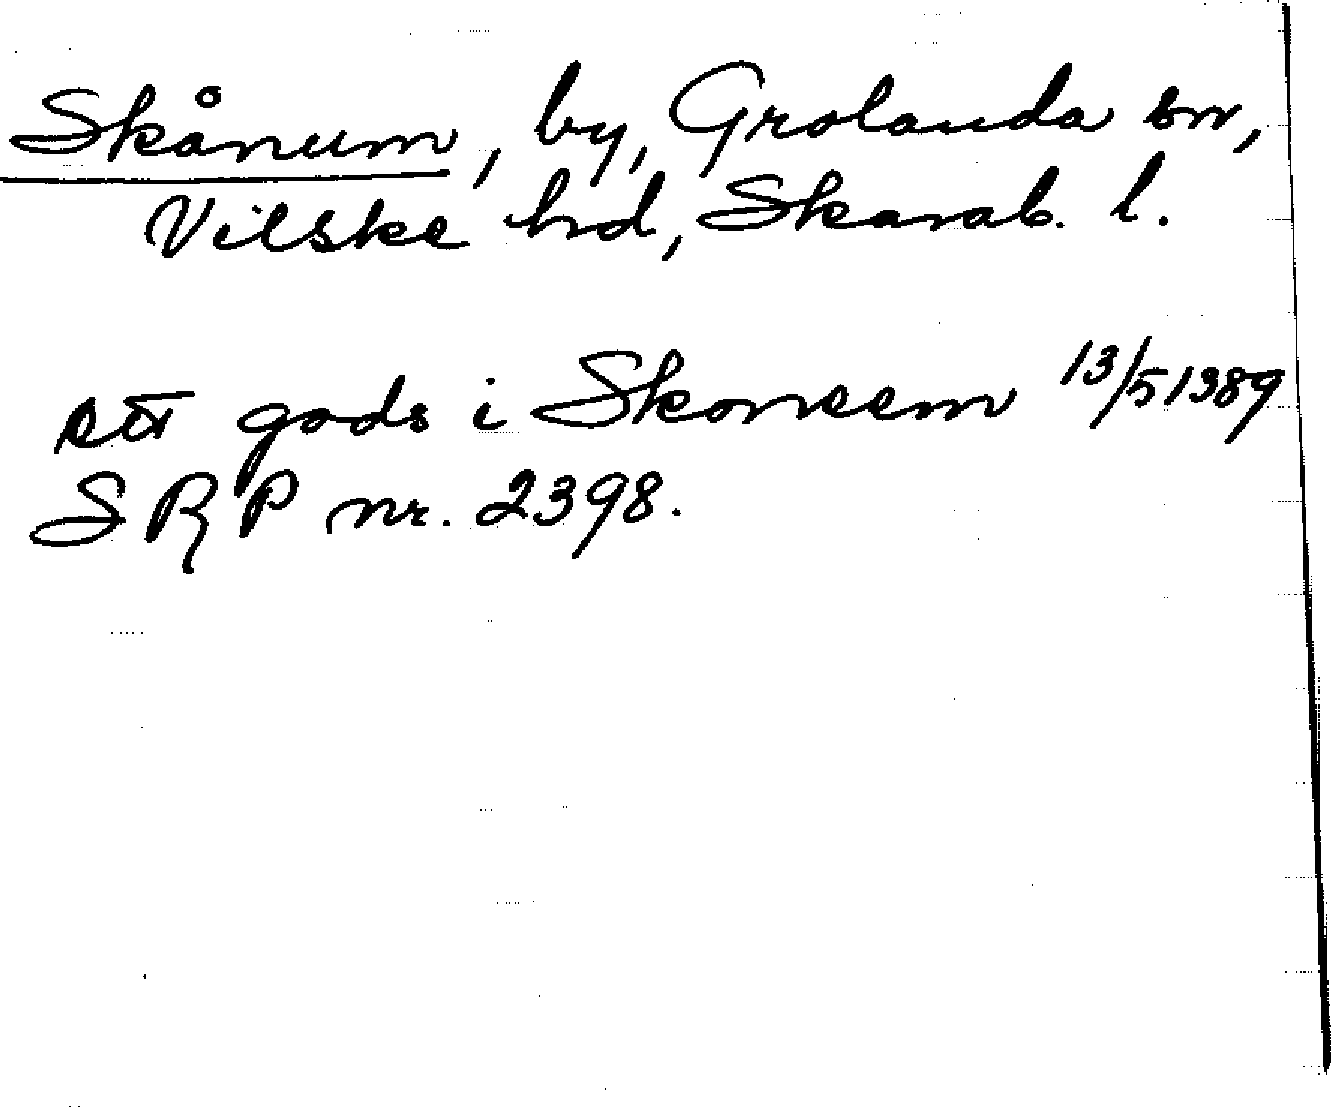 Skånum, by, Grolanda sn,
Vilske hd, Skarab. l.
ett gods i Skoneem 13/5 1389
SRP nr. 2398.